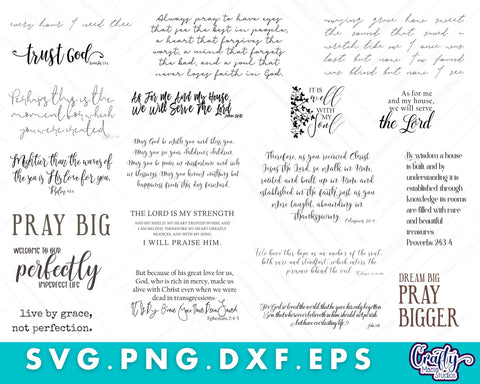 every hour I need thee
trust God
Always pray to have eyes
that see the best in people,
a heart that forgives the
worst, a mind that forgets
the bad, and a soul that
never loses faith in God.
amazing grace how sweet
the sound that saved a
wretch like me I once was
lost but now I'm found
was blind but now I see
Perhaps this is the
moment for which
you were created.
As For Me And My House,
We Will Serve The Lord
Joshua 24:15
IT IS
well
WITH
my
Soul
As for me
and my house,
we will serve
the Lord
Mightier than the waves of
the sea is His love for you.
Psalm 93:4
May God be with you and bless you.
May you see your children's children.
May you be poor in misfortunes and rich
in blessings. May you know nothing but
happiness from this day forward.
Therefore, as you received Christ
Jesus the Lord, so walk in Him,
rooted and built up in Him and
established in the faith, just as you
were taught, abounding in
thanksgiving.
Colossians 2:6-7
By wisdom a house
is built and by
understanding it is
established through
knowledge its rooms
are filled with rare
and beautiful
treasures.
Proverbs 24:3-4
PRAY BIG
THE LORD IS MY STRENGTH
AND MY SHIELD. MY HEART TRUSTED HIM AND
I AM HELPED. THEREFORE MY HEART GREATLY
REJOICES, AND WITH MY SONG
I WILL PRAISE HIM.
WELCOME TO OUR
perfectly
IMPERFECT LIFE
We have this hope as an anchor of the soul,
both sure and steadfast, which enters the
presence behind the veil
But because of his great love for us,
God, who is rich in mercy, made us
alive with Christ even when we were
dead in transgressions-
It Is By Grace You Have Been Saved.
Ephesians 2:4-5
DREAM BIG
PRAY
BIGGER
live by grace,
not perfection.
For God so loved the world that he gave his only begotten
Son, that whosoever believeth in him should not perish
but have everlasting life.
John 3:16
SVG.PNG.DXF.EPS
Crafty
Mama
Studios